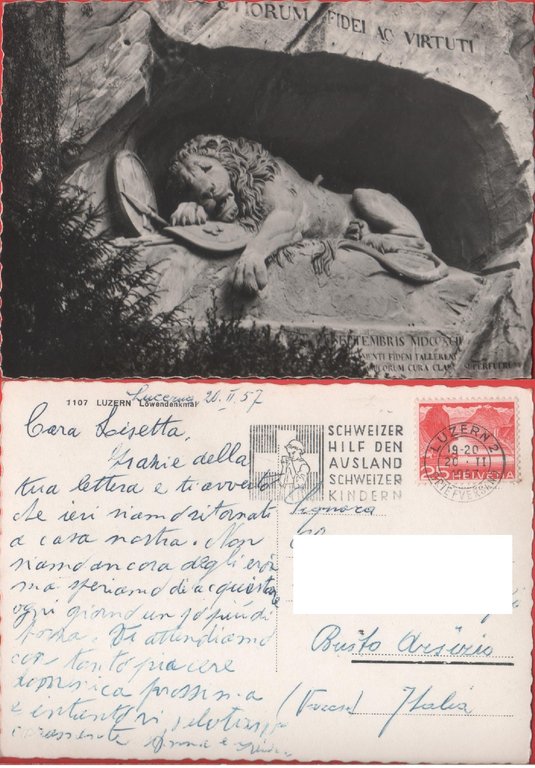 HELVETIORUM FIDEI AC VIRTUTI
SEPTEMBRIS MDCCXCII
FIDEM FALLERENT
CURA CLADI SUPERFUERUNT
1107 LUZERN Löwendenkmal
Lucerna 20.II.57
Cara Lisetta,
Grazie della
tua lettera e ti avverto
che ieri siamo ritornati
a casa nostra. Non
siamo ancora degli eroi
ma speriamo di acquistare
ogni giorno un po' più di
forza. Ti attendiamo
con tanto piacere
domenica prossima
e
Anna e
SCHWEIZER
HILF DEN
AUSLAND
SCHWEIZER
KINDERN
LUZERN 2
19-20
20.II
BRIEFVERSAND
25 HELVETIA
Signora
Busto Arsizio
(Varese) Italia